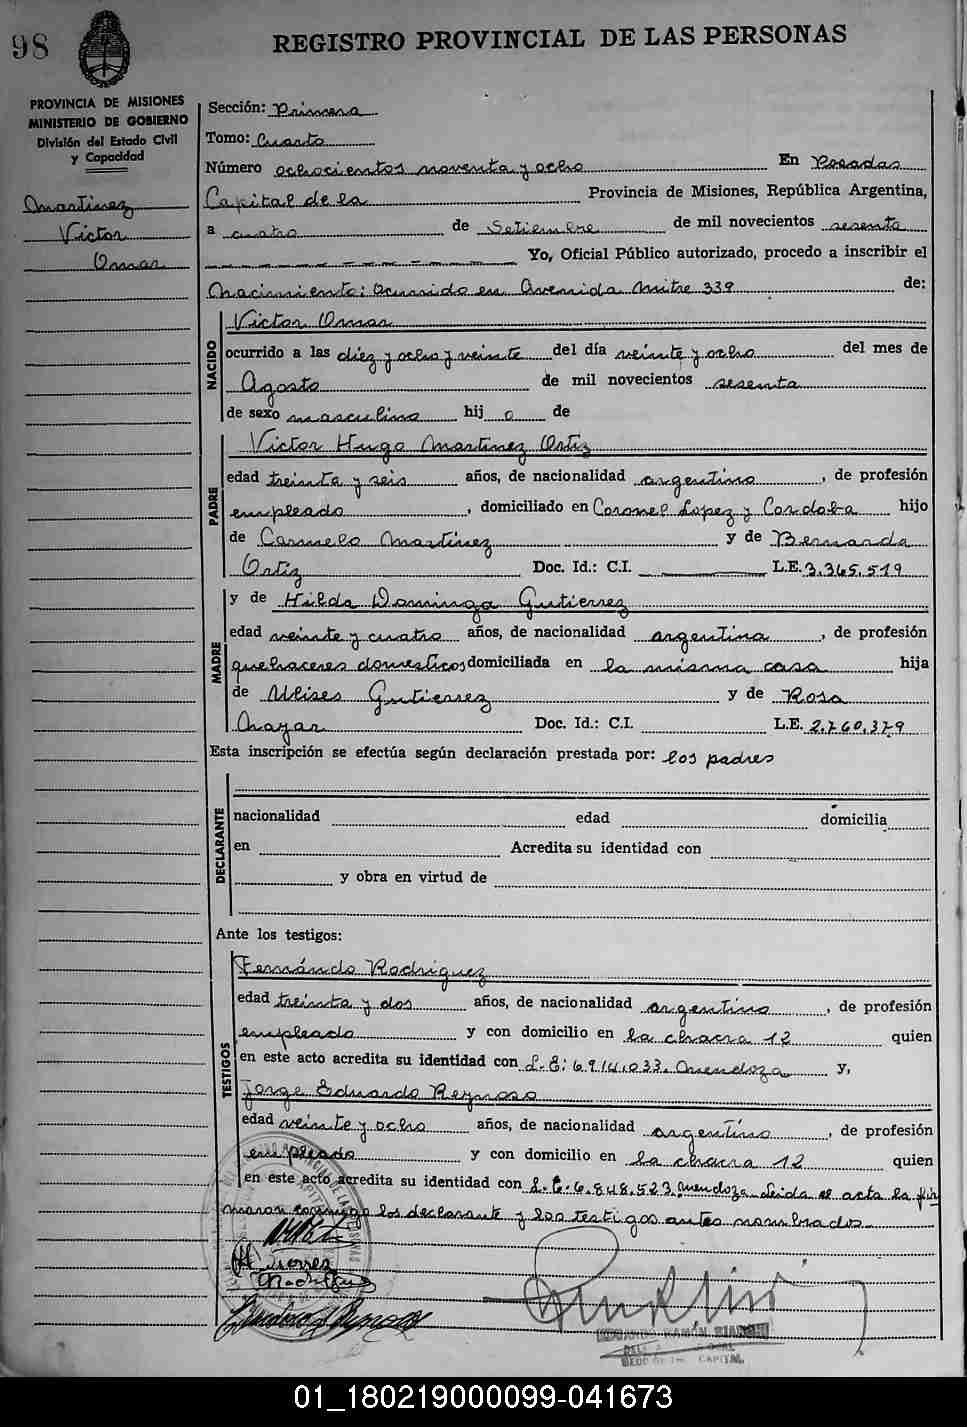 98
REGISTRO PROVINCIAL DE LAS PERSONAS
PROVINCIA DE MISIONES
MINISTERIO DE GOBIERNO
División del Estado Civil
y Capacidad
Martinez
Victor
Omar
Sección: Primera
Tomo: Cuarto
Número ochocientos noventa y ocho En Posadas
Capital de la Provincia de Misiones, República Argentina,
a cuatro de Setiembre de mil novecientos sesenta
Yo, Oficial Público autorizado, procedo a inscribir el
Nacimiento: ocurrido en Avenida Mitre 339 de:
NACIDO
Victor Omar
ocurrido a las diez y ocho y veinte del día veinte y ocho del mes de
Agosto de mil novecientos sesenta
de sexo masculino hij o de
PADRE
Victor Hugo Martinez Ortiz
edad treinta y seis años, de nacionalidad argentino, de profesión
empleado, domiciliado en Coronel Lopez y Cordoba hijo
de Carmelo Martinez y de Bernarda
Ortiz Doc. Id.: C.I. L.E. 3.365.519
MADRE
y de Hilda Dominga Gutierrez
edad veinte y cuatro años, de nacionalidad argentina, de profesión
quehaceres domesticos domiciliada en la misma casa hija
de Ulises Gutierrez y de Rosa
Chazar Doc. Id.: C.I. L.E. 2.760.379
Esta inscripción se efectúa según declaración prestada por: los padres
DECLARANTE
nacionalidad edad domicilia
en Acredita su identidad con
y obra en virtud de
Ante los testigos:
TESTIGOS
Fernándo Rodriguez
edad treinta y dos años, de nacionalidad argentino, de profesión
empleado y con domicilio en la chacra 12 quien
en este acto acredita su identidad con L.E: 6.914.033. Mendoza y,
Jorge Eduardo Reynoso
edad veinte y ocho años, de nacionalidad argentino, de profesión
empleado y con domicilio en la chacra 12 quien
en este acto acredita su identidad con L.E. 6.848.523. Mendoza. Leida el acta la fir
maron conmigo los declarante y los testigos antes nombrados.
CAPITAL
01_180219000099-041673